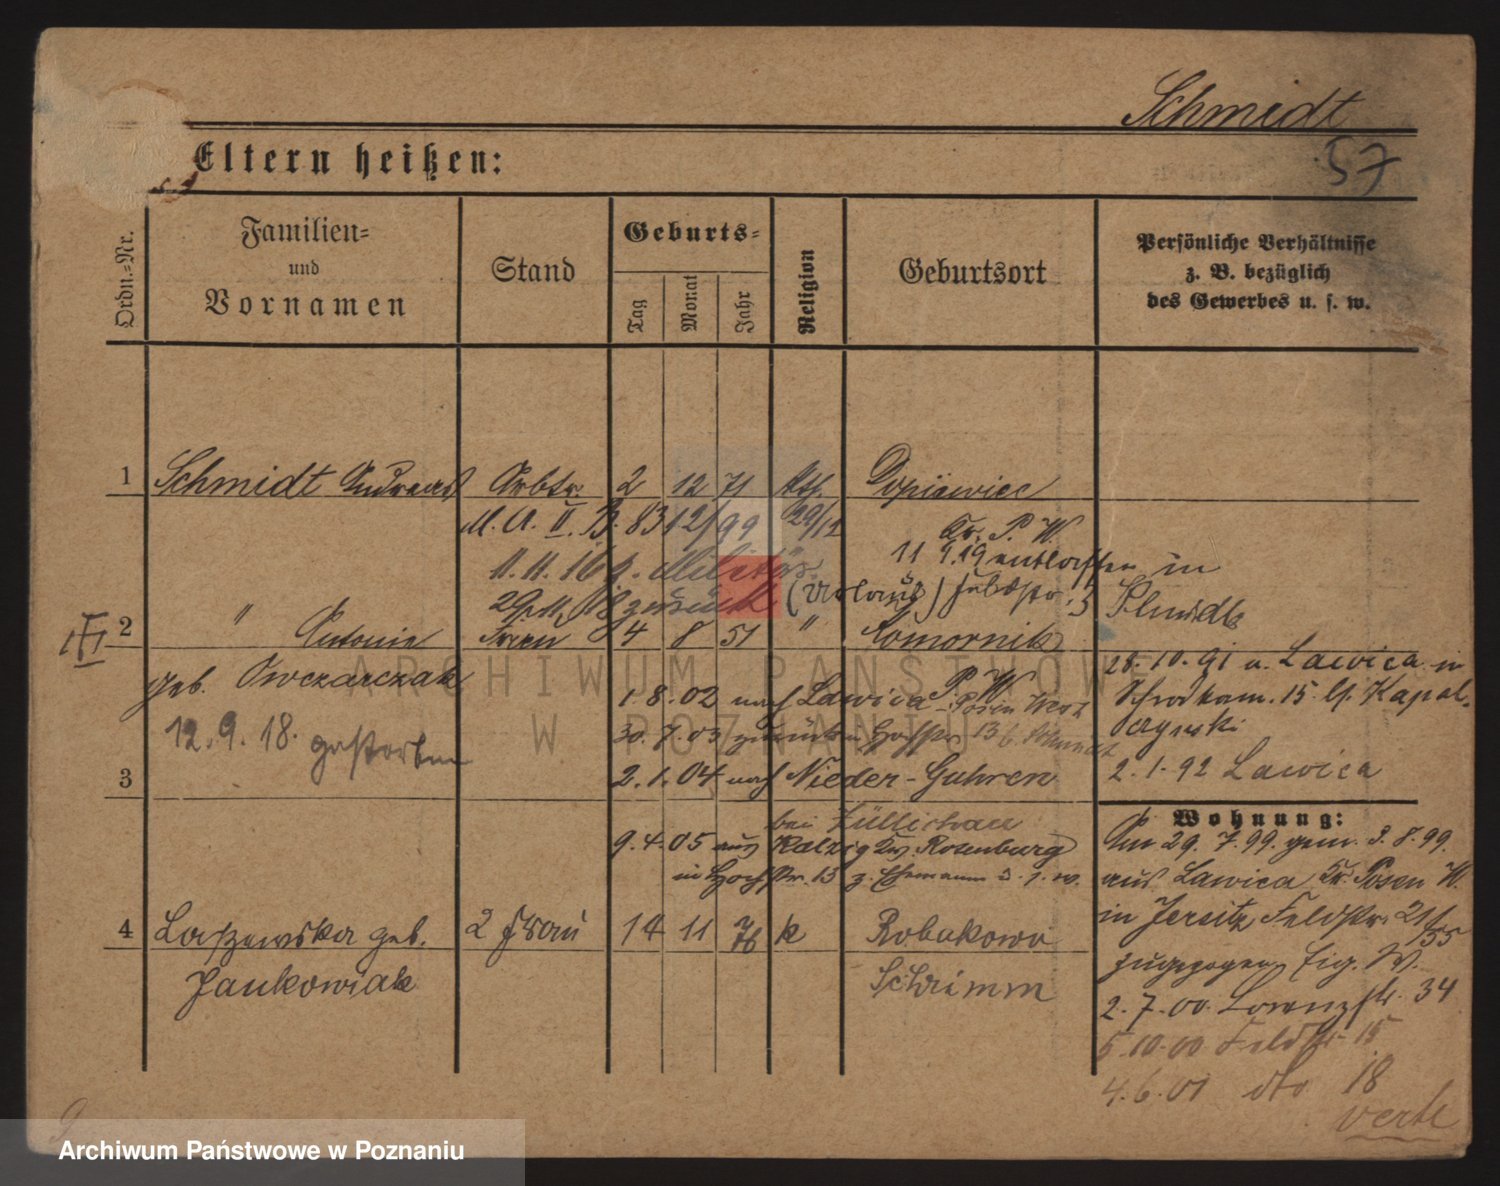 Schmidt
57
Eltern heißen:
Ordn.=Nr.
Familien=
und
Vornamen
Stand
Geburts=
Tag
Monat
Jahr
Religion
Geburtsort
Persönliche Verhältnisse
z. B. bezüglich
des Gewerbes u. s. w.
1 Schmidt Andreas Arbtr. 2 12 71 kth. Dopiewiec
M. A. II. B. 83 12/99 29/12 Kr. P. W.
11.11.16 z. Militär 11 1.19 entlassen in
zurück (Urlaub)
2 " Antonie Frau 4 8 51 " Komornik
geb. Owczarczak P. W.
28.10.91 n. Lawica in
1.8.02 nach Lawica Posen West
15 bf. Kapal-
czynski
12.9.18. gestorben
30.7.03 zurück n Hochstr 13
2.1.92 Lawica
3 2.1.04 nach Nieder-Guhren
bei Züllichau
9.4.05 aus Kalzig Kr. Rosenburg
in Hochstr. 13 z. Ehemann
Wohnung:
Am 29.7.99 gem. 3.8.99
aus Lawica Kr. Posen W.
in Jersitz Feldstr. 21/55
zugezogen Eig. W.
2.7.00 Lorenzstr. 34
5.10.00 Feldstr 15
4.6.01 dto 18
verte
4 Laszewska geb. 2 Frau 14 11 76 k Robakowo
Jankowiak Schrimm
ARCHIWUM PAŃSTWOWE
W POZNANIU
Archiwum Państwowe w Poznaniu